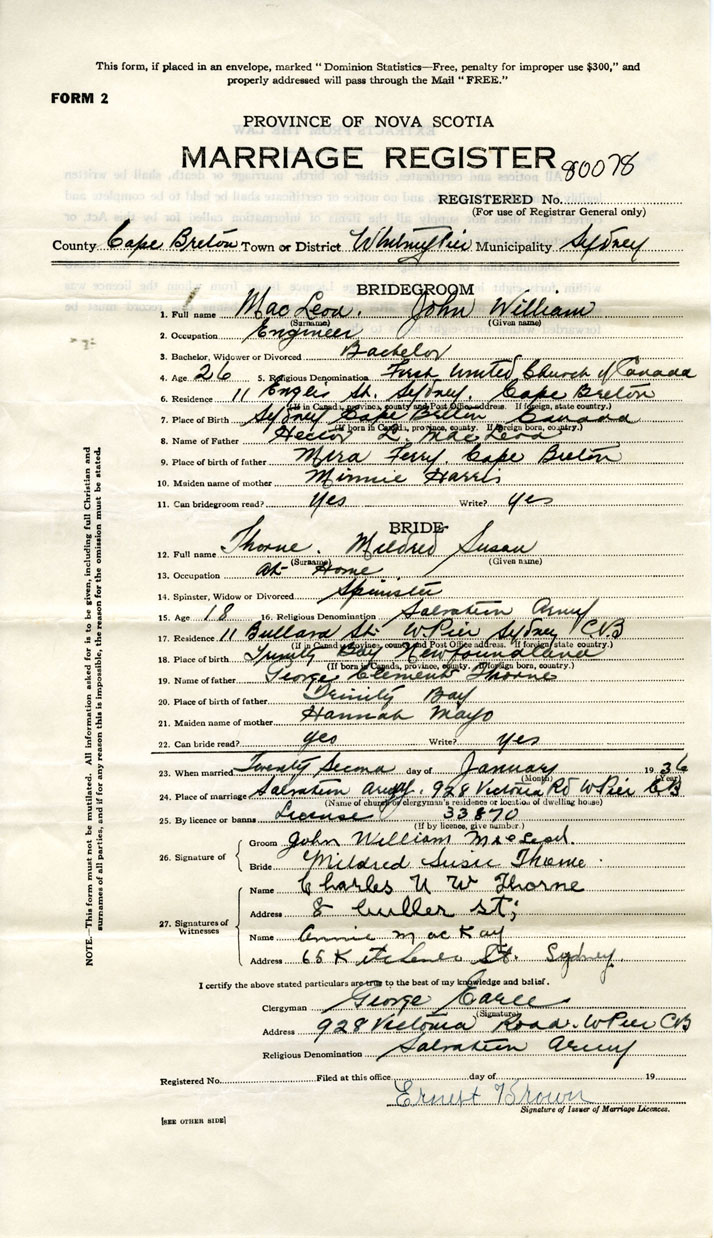 This form, if placed in an envelope, marked "Dominion Statistics—Free, penalty for improper use $300," and
properly addressed will pass through the Mail "FREE."
FORM 2
PROVINCE OF NOVA SCOTIA
MARRIAGE REGISTER 80078
REGISTERED No.
(For use of Registrar General only)
County Cape Breton Town or District Whitney Pier Municipality Sydney
BRIDEGROOM
1. Full name Mac Leod. John William
(Surname) (Given name)
2. Occupation Engineer
3. Bachelor, Widower or Divorced Bachelor
4. Age 26 5. Religious Denomination First United Church of Canada
6. Residence 11 St. Sydney. Cape Breton
(If in Canada, province, county and Post Office address. If foreign, state country.)
7. Place of Birth Sydney Cape Breton Canada
(If born in Canada, province, county. If foreign born, country.)
8. Name of Father Hector L. Mac Leod
9. Place of birth of father Mira Ferry Cape Breton
10. Maiden name of mother Minnie Harris
11. Can bridegroom read? Yes Write? Yes
BRIDE
12. Full name Thorne. Mildred Susan
(Surname) (Given name)
13. Occupation at Home
14. Spinster, Widow or Divorced Spinster
15. Age 18 16. Religious Denomination Salvation Army
17. Residence 11 St. W Pier Sydney CB
(If in Canada province, county and Post Office address. If foreign, state country.)
18. Place of birth Trinity Bay Newfoundland
(If born in Canada, province, county. If foreign born, country.)
19. Name of father George Clement Thorne
20. Place of birth of father Trinity Bay
21. Maiden name of mother Hannah Mayo
22. Can bride read? yes Write? Yes
23. When married Twenty Second day of January 1936
(Month) (Year)
24. Place of marriage Salvation Army. 928 Victoria Rd W Pier CB
(Name of church or clergyman's residence or location of dwelling house)
25. By licence or banns License 33870
(If by licence, give number.)
26. Signature of
Groom John William MacLeod.
Bride Mildred Susie Thorne
27. Signatures of Witnesses
Name Charles N W Thorne
Address 8 St;
Name Annie MacKay
Address 66 Kitchener St. Sydney.
I certify the above stated particulars are true to the best of my knowledge and belief.
Clergyman George Earle
(Signature)
Address 928 Victoria Road. W Pier CB
Religious Denomination Salvation Army
Registered No. Filed at this office day of 19
Ernest Brown
Signature of Issuer of Marriage Licences.
[SEE OTHER SIDE]
NOTE.—This form must not be mutilated. All information asked for is to be given, including full Christian and
surnames of all parties, and if for any reason this is impossible, the reason for the omission must be stated.